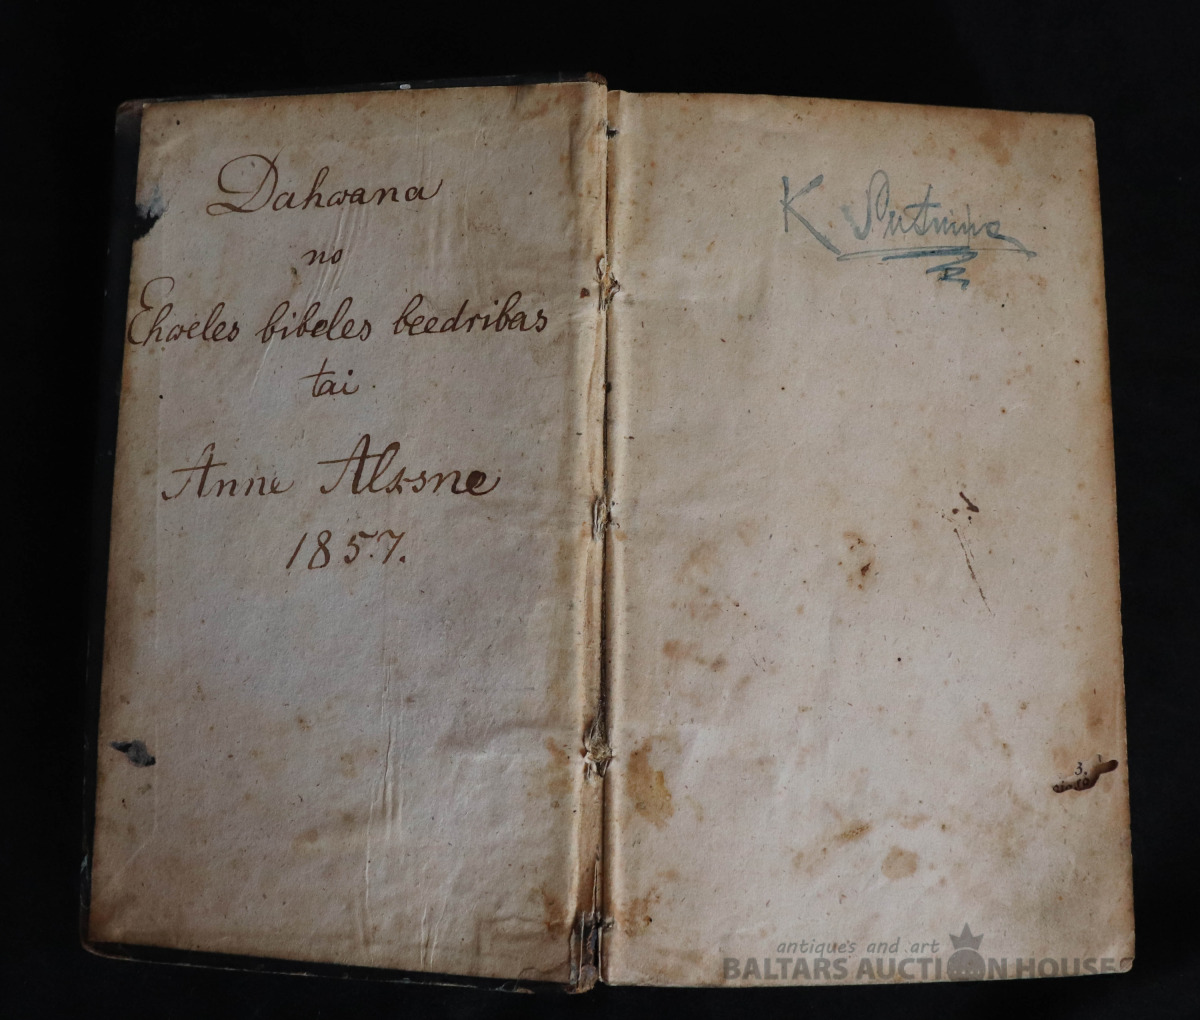 Dahwana
no
Ehweles bibeles beedribas
tai
Anne Alksne
1857.
K
3.
antique's and art
BALTARS AUCTION HOUSE